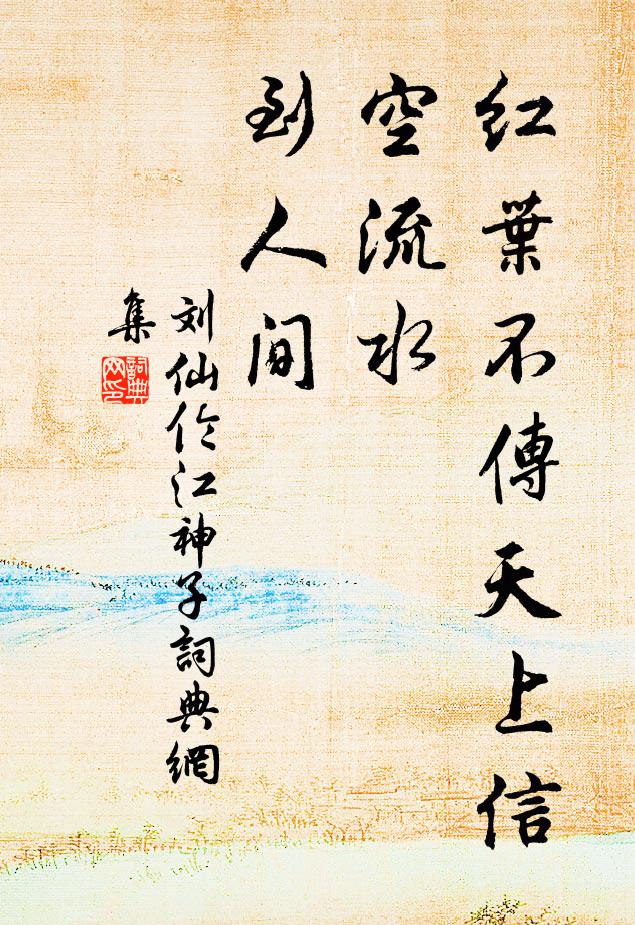 红葉不傳天上信
空流水
到人间
刘仙伦江神子詞典網
集
詞典
网印